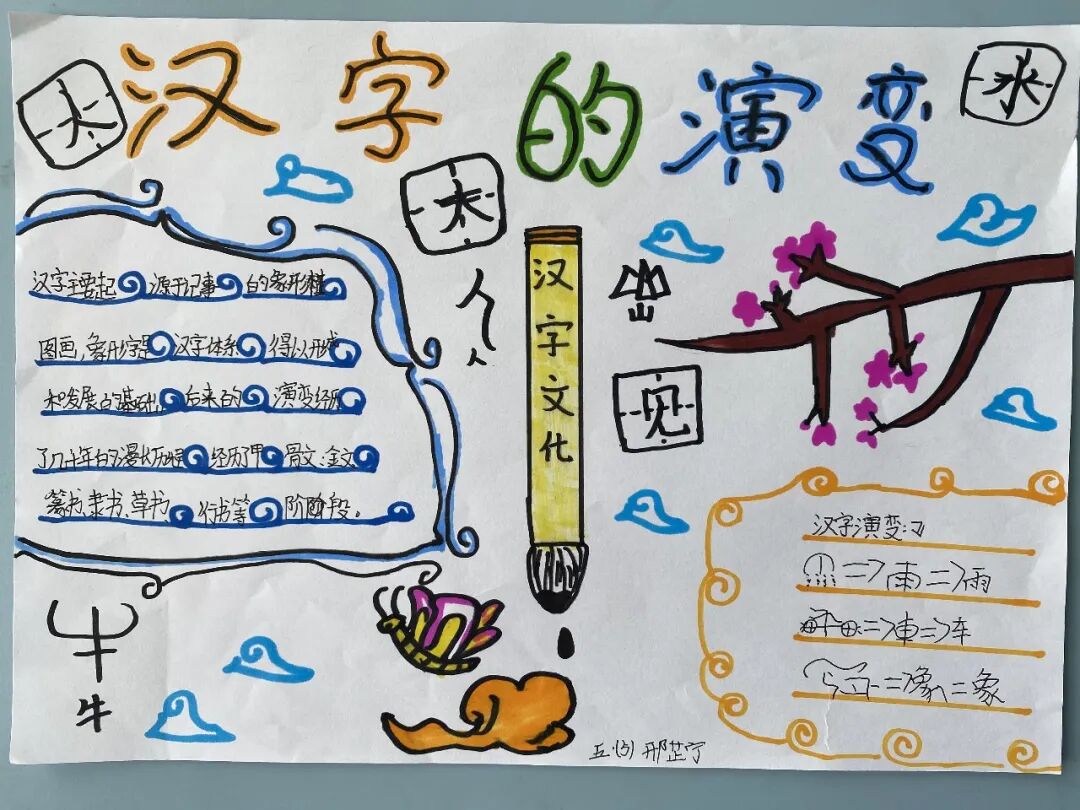 汉字的演变
太
永
木
汉字主要起源于记事的象形性
图画，象形字是汉字体系得以形成
和发展的基础，后来的演变经历
了几千年的漫长历程经历了甲骨文：金文
篆书、隶书、草书、行书等阶段。
人
汉字文化
山
见
牛
汉字演变：
雨
車 车
象
五·(3) 邢芷宁